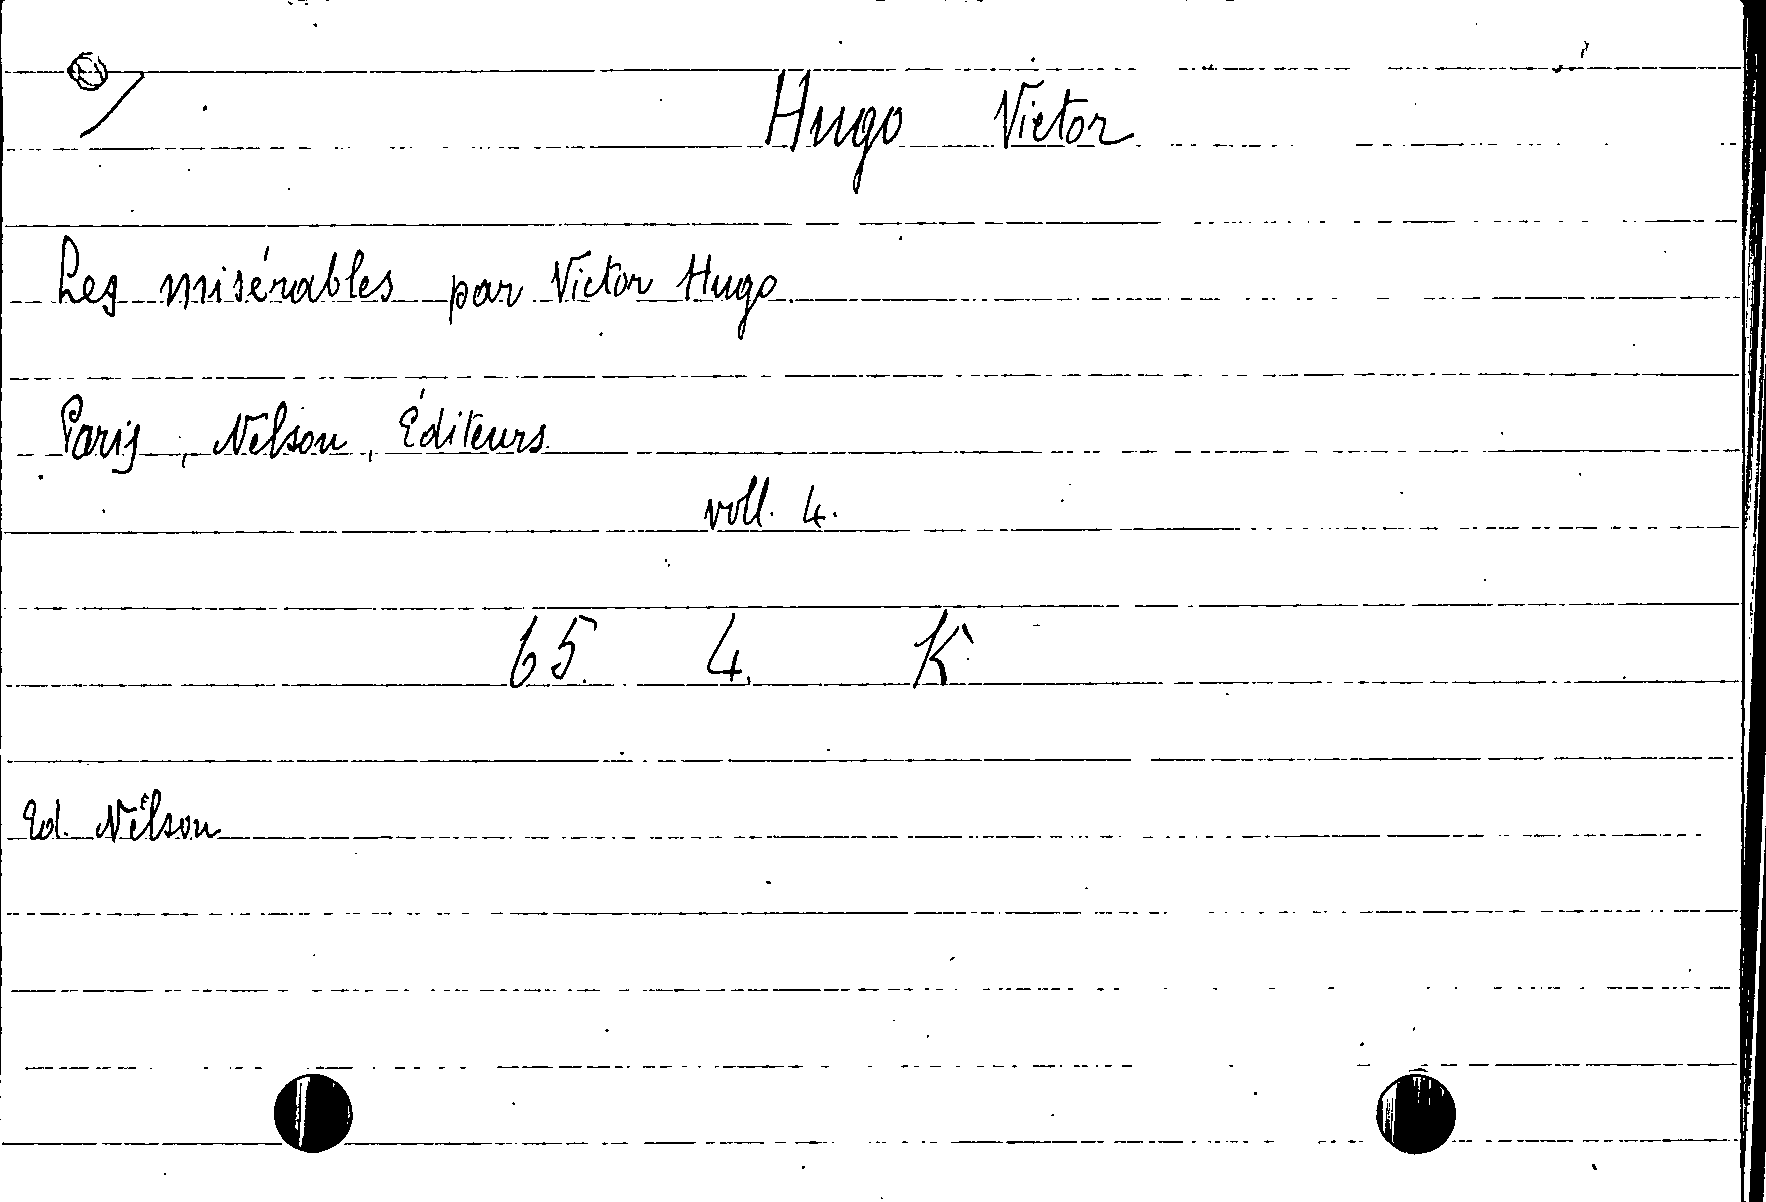 Hugo Victor
Les misérables par Victor Hugo
Paris, Nelson, Éditeurs
voll. 4.
65. 4. K
Ed. Nelson